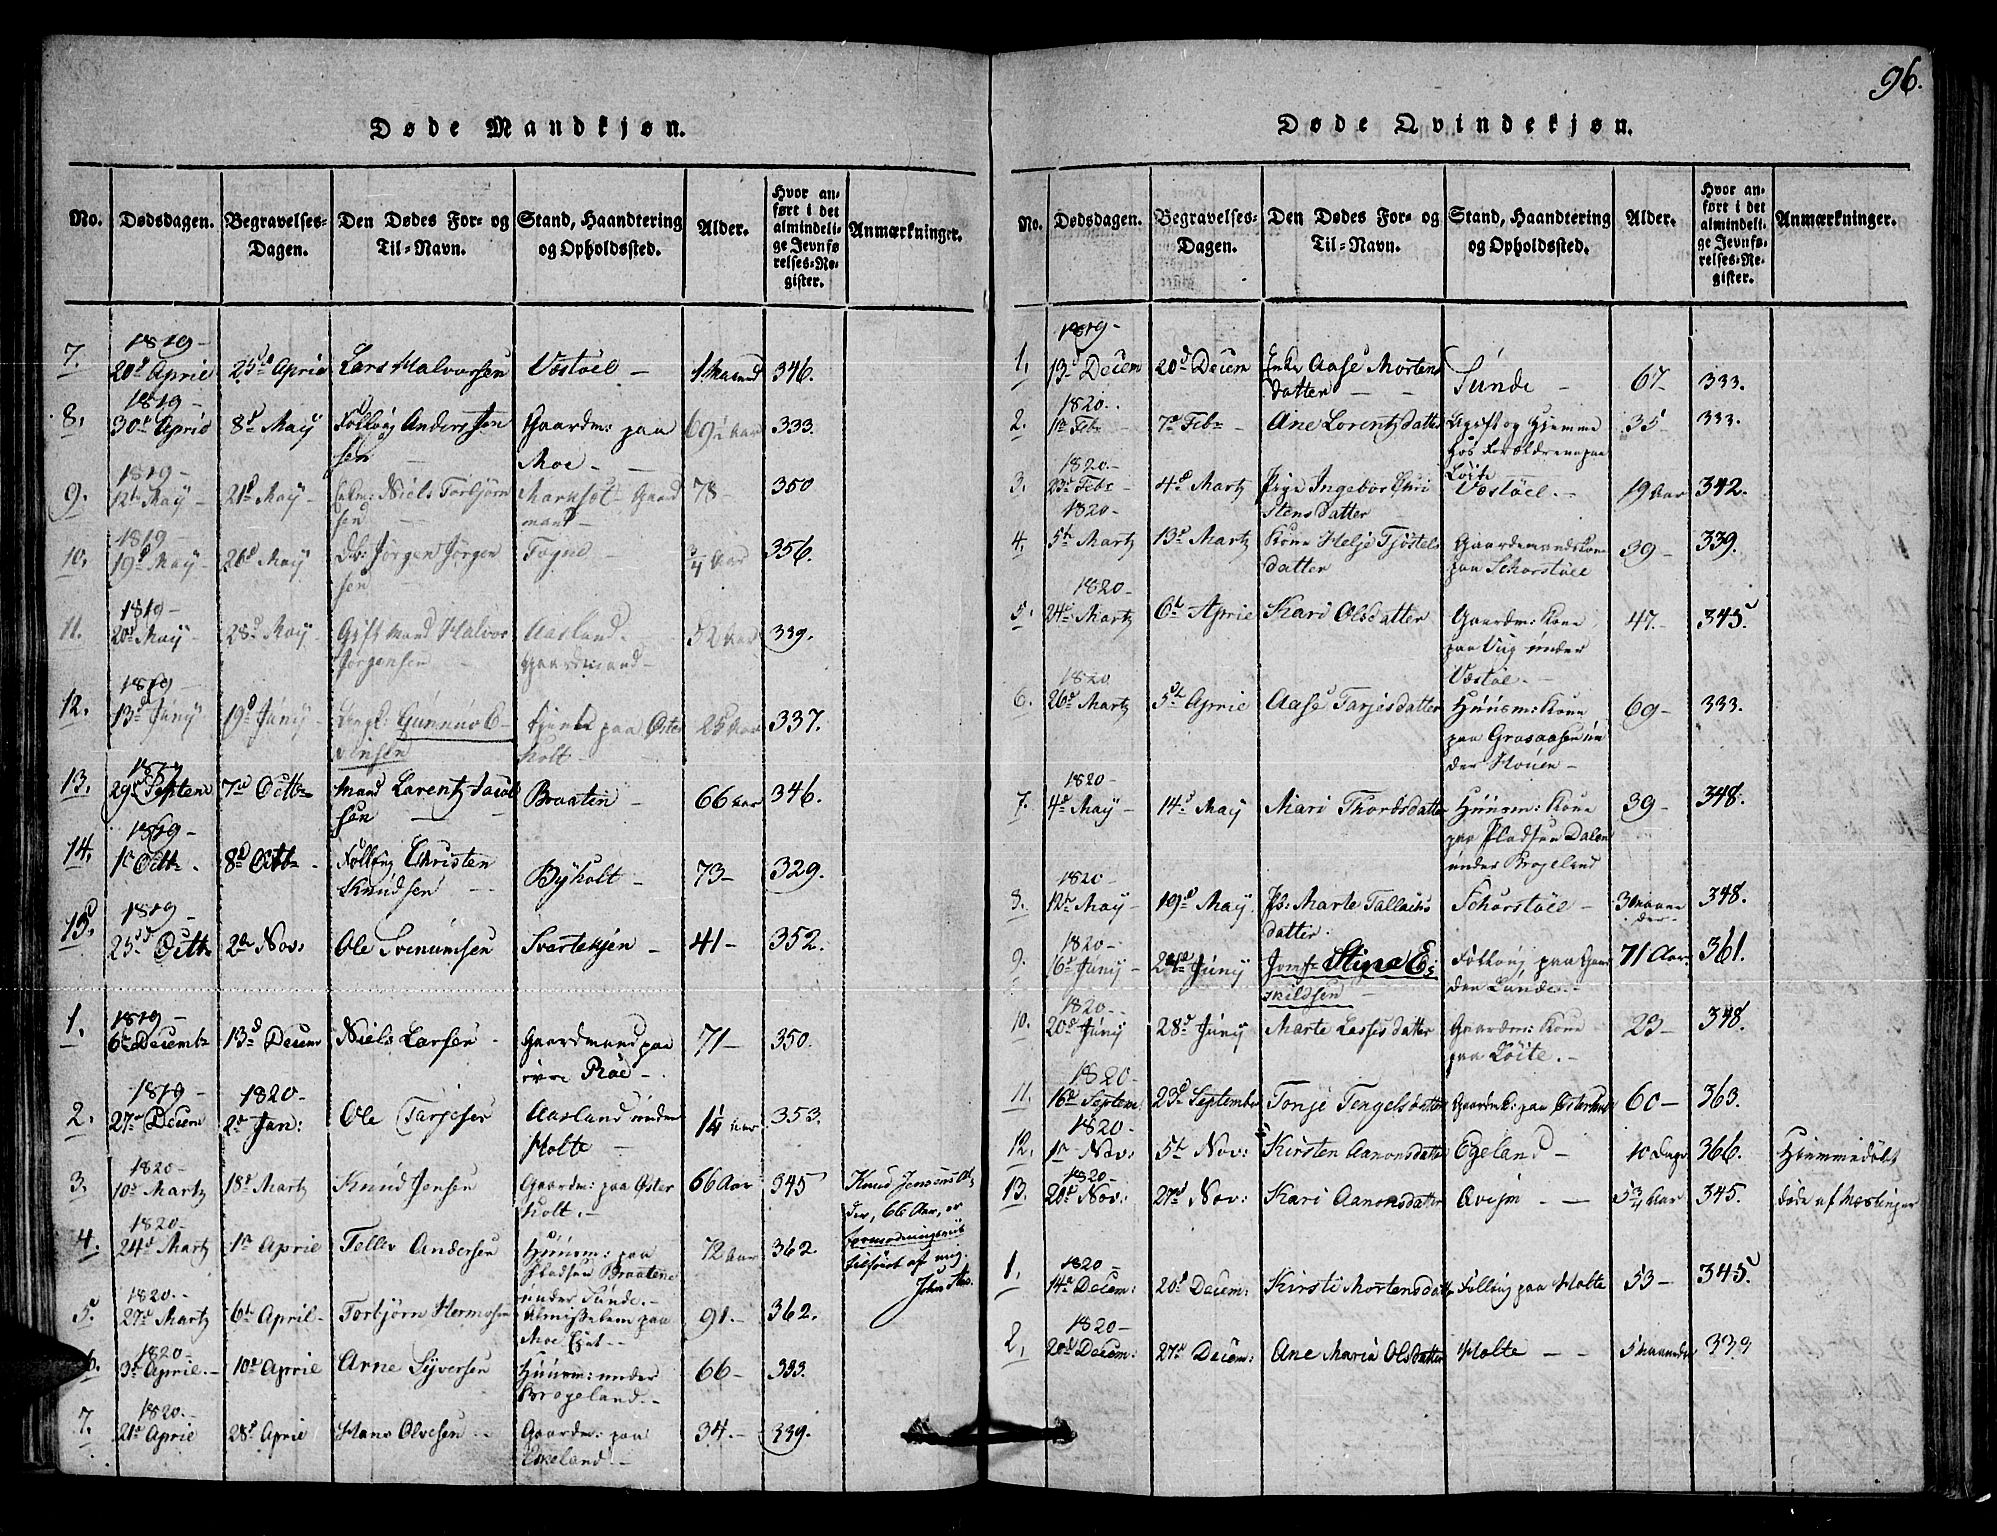 96.
Døde Mandkjøn.
No. Dødsdagen. Begravelses-Dagen. Den Dødes For- og Til-Navn. Stand, Haandtering og Opholdssted. Alder. Hvor anført i det almindelige Jevnførelses-Register. Anmærkninger.
1819-
7. 20d April 25d April Lars Halvorsen Væstøel - 1 Maaned 346.
1819-
8. 30d April 8d May Anders Moe - 333.
Gaardm: paa
1819-
9. 12te May 21d May Niels Torbjørnsen Gaardmand 78 350
1819-
10. 19d May 26d May Jørgen Jørgensen Togne - 356.
1819-
11. 20d May 28d May Gift Mand Halvor Jørgensen Aasland. Gaardmand - 52 Aar 339.
1819-
12. 13d Juny 19d Juny paa Østerholt - 25 Aar 337.
13. 29d Septem 7d Octbr Mand Lorentz Jacobsen Braaten - 66 Aar 346.
1819-
14. 1e Octbr. 8d Octbr. Christen Knudsen Byholt - 73 - 329.
1819-
15. 25d Octbr 2d Nov: Ole Svenumsen Svartekjen - 41 - 352.
1819-
1. 6te Decembr 13d Decem Niels Larsen - Gaardmand paa 71 - 350.
1819- 1820-
2. 27de Decem 2d Jan: Ole Tarjesen Aasland under Holte - 14 Aar 353.
1820-
3. 10de Martz 18d Martz Knud Jensen Gaardm: paa Østerholt. - 66 Aar 345 Knud Jensens Alder, 66 Aar, er formodningsviis tilført af mig.
1820-
4. 24d Martz 1e April Tellev Andersen Huusm: paa Pladsen Braatene under Sunde. - 72 Aar 362.
1820-
5. 27d Martz 6te April - Torbjørn Hermosen Almisselem paa Moe Ejet - 91. - 362.
1820-
6. 3d April. - 10d April Arne Syversen Huusm: under Brogeland. - 66 - 333.
1820. -
7. 21d April 28d April Hans Olvesen - Gaardm: paa Eskeland. - 34. - 339.
Døde Qvindekjøn.
No. Dødsdagen. Begravelses-Dagen. Den Dødes For- og Til-Navn. Stand, Haandtering og Opholdssted. Alder. Hvor anført i det almindelige Jevnførelses-Register. Anmærkninger.
1819-
1. 13d Decem 20d Decem Enke Aase Mortensdatter - Sunde - 67 - 333.
1820.
2. 1e Febr 7d Febr - Ane Lorentzdatter Ugift og Hjemme hos Forældrene paa Løite 35 - 333.
1820.-
3. 23d Febr 4d Martz Pige Ingebor Christensdatter Væstøel. - 19 Aar 342.
1820-
4. 5te Martz 13d Martz Kone Helje Tjøstelsdatter Gaardmandskone paa Schorstøll 39 - 339.
1820-
5. 24d Martz 6te April Kari Olsdatter Gaardm: Kone paa under Væstøl. - 47. - 345.
1820
6. 26d Martz 5te April Aase Tarjesdatter Huusm: Kone paa Grasaasen under 69 - 333.
1820
7. 4d May - 14d May Mari Thordsdatter Huusm: Kone paa Pladsen Dalen under Brogeland 39 - 348.
1820-
8. 12te May - 19d May Marte Tallachsdatter. Schorstøll - 3 Maaneder - 348.
1820-
9. 16d Juny - 24d Juny Jomfr Stine Eskildsen - paa Gaarden Lunde. - 71 Aar - 361.
1820-
10. 20d Juny 28d Juny Marte Lassesdatter Gaardm: Kone paa Løite. - 23 - 348.
1820-
11. 16d Septem 23d September Tonje Tengelsdatter Gaardmk: paa Østerholt 60 - 363.
1820-
12. 1e Nov: 5te Nov: Kirsten Aanonsdatter Egeland - 10 Dage 366. Hjemmedøbt
1820-
13. 20d Nov: 27d Nov: Kari Aanonsdatter - - 5 3/4 Aar 345. døde af Mæslinger
1820-
1. 14d Decem: 20d Decem: Kirsti Mortensdatter paa Holte 53 - 345.
1820-
2. 20d Decem: 27d Decem: Ane Maria Olsdatter Holte - - 5 Maaneder 339